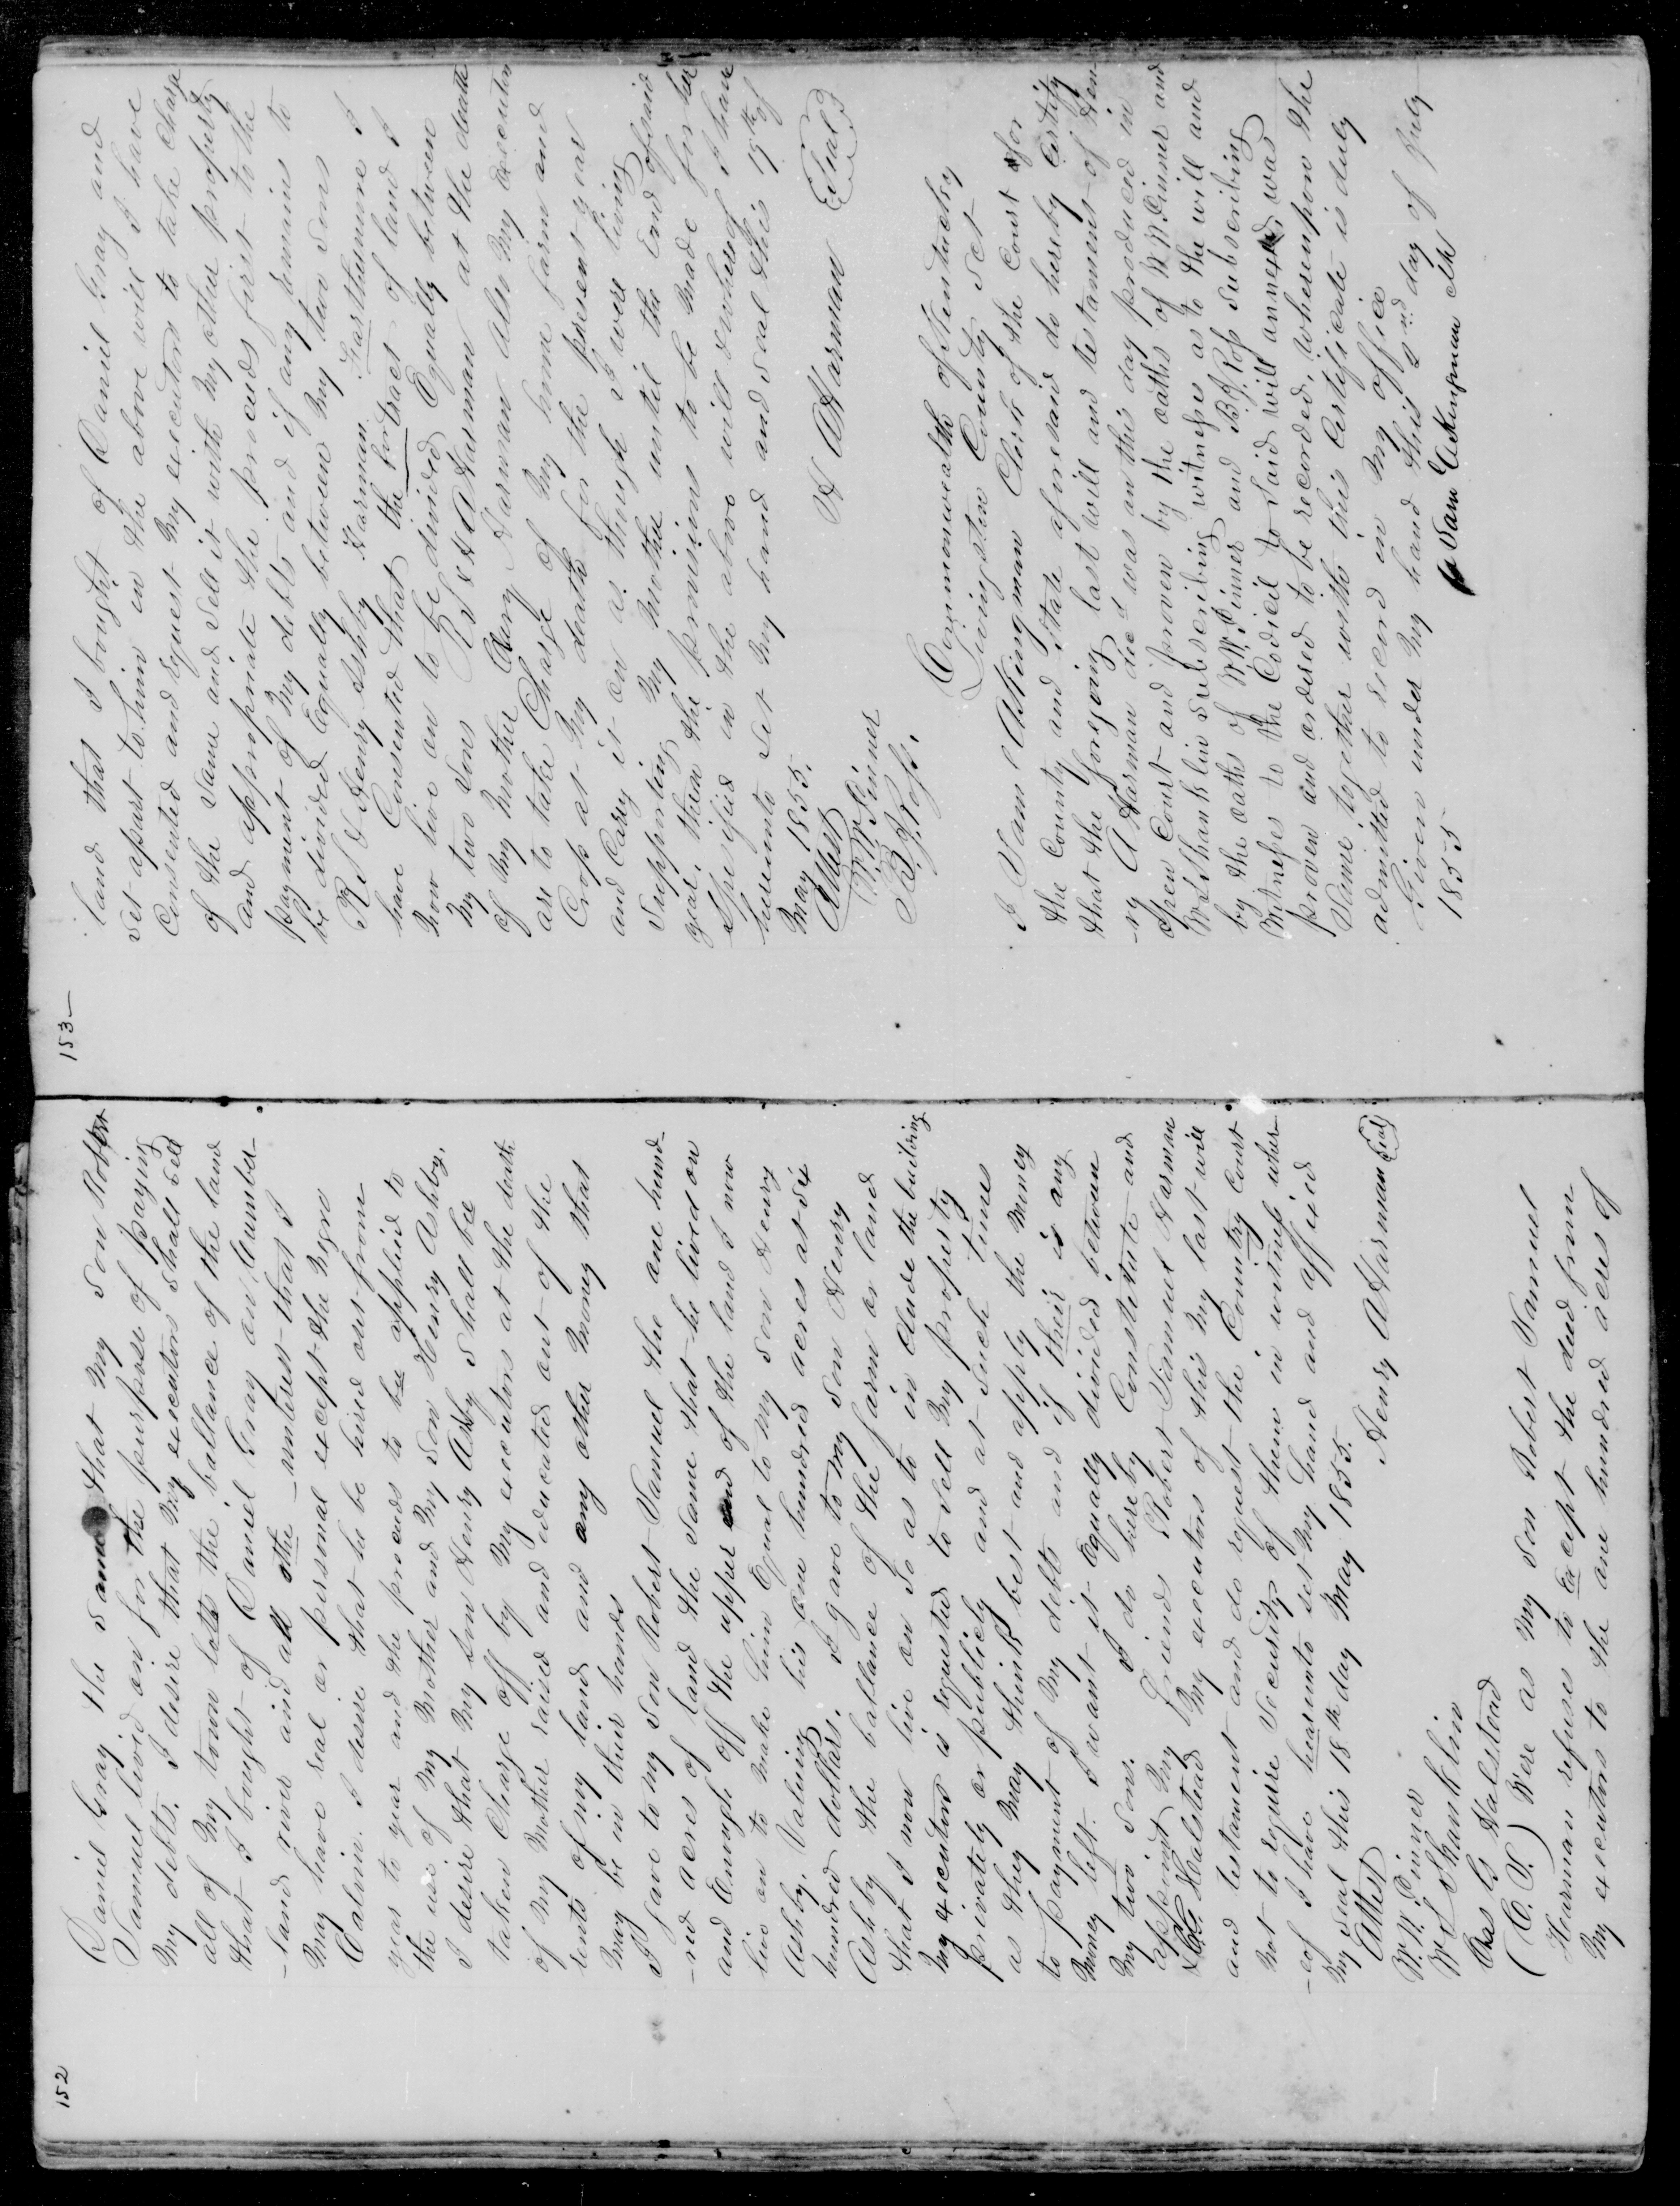 152
Daniel Gray the same that my son Robert
Samuel lived on for the purpose of paying
my debts. I desire that my executors shall sell
all of my town lotts the ballance of the land
that I bought of Daniel Gray on Cumber-
-land river and all othe interest that I
may have real or personal except the Negro
Calvin. I desire that he be hired out from
year to year and the proceeds to be applied to
the use of my Mother and my son Henry Ashby.
I desire that my son Henry Ashby shall bee
taken Charge off by my executors at the death
of my Mother raised and educated out of the
rents of my land and any other money that
may be in their hands
I gave to my son Robert Samuel the one hund-
-red acres of land the same that he lived on
and Enough off the upper end of the land I now
live on to make him Equal to my son Henry
Ashby. Valuing his one hundred acres at six
hundred dollars. I gave to my son Henry
Ashby the ballance of the farm or land
that I now live on so as to in clude the building
My executors is requested to sell my property
privately or publicly and at such times
as they may think best and apply the money
to payment of my debts and if their is any
money left. I want it Equally divided between
my two sons. I do hereby Constetute and
appoint my friends Robert Samuel Harman
& C.G. Halstead my executors of this my last will
and testament and do request the Country Court
not to require Security of them in witness wher-
-eof I have hearunto set my hand and affixed
my seal this 18th day May 1855.
Henry A Harman Seal
Attest
W.W. Pinner
W L Shanklin
Chas G Halstead
(C. V.) Were as my son Robert Samuel
Harman refuses to Ex cept the deed from
my executors to the one hundred acres of
153—
land that I bought of Daniel Gray and
set apart to him in the above will I have
Consented and request my executors to take charge
of the same and sell it with my other property
and appropriate the proceeds first to the
payment of my debts and if any remains to
be divided Equally between my two sons
R S & Henry Ashby Harman. Farthermore I
have Consented that the for tract of land I
now live on to be divided Equally between
my two sons R S & H A Harman at the death
of my Mother Mary Harman Also my executors
are to take Charge of my home farm and
Crop at my death for the present year
and Cary it on as though I were living
supporting my Mother until the End of said
year, then the provisions to be made for her
specified in the above will & whereof I have
hereunto set my hand and seal this 19th of
May 1855.
H A Harman Seal
Attest
W.W. Pinner
B. J. Ross.
Commonwealth of Kentucky
Livingston County Sct
I Saml A Akingman Clerk of the Court for
the County and state aforesaid do hereby Certify
that the foregoing last will and testament of Hen-
-ry A Harman decd was on this day produced in
open Court and proven by the oaths of W W Pinner and
W L Shanklin subscribing witnesses as to the will and
by the oaths of W.W. Pinner and B J. Ross subscribing
witnesses to the Codicil to said will annexed was
proven and ordered to be recorded, whereupon the
same together with this Certificate is duly
admitted to record in my office
Given under my hand this 2nd day of July
1855
Sam Clk